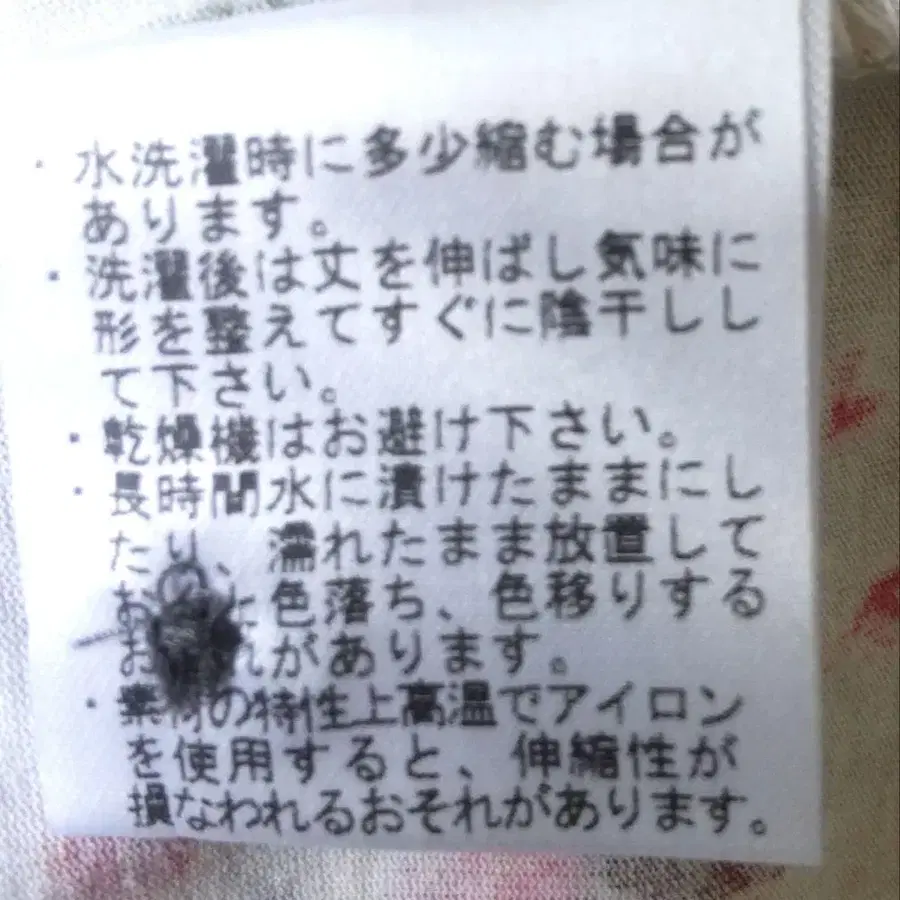 ・水洗濯時に多少縮む場合が
あります。
・洗濯後は丈を伸ばし気味に
形を整えてすぐに陰干しし
て下さい。
・乾燥機はお避け下さい。
・長時間水に漬けたままにし
たり、濡れたまま放置して
お と色落ち、色移りする
お れがあります。
・素材の特性上高温でアイロン
を使用すると、伸縮性が
損なわれるおそれがあります。